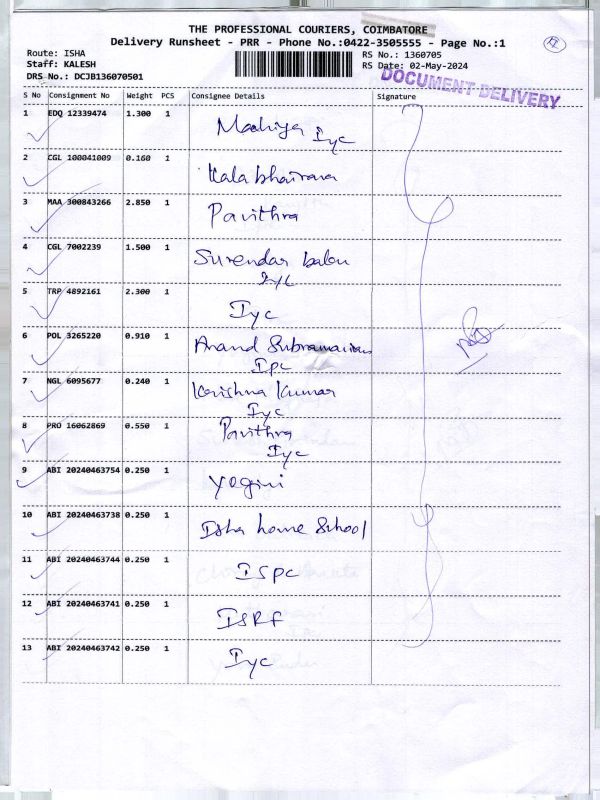 THE PROFESSIONAL COURIERS, COIMBATORE
Delivery Runsheet - PRR - Phone No.:0422-3505555 - Page No.:1
Route: ISHA
Staff: KALESH
DRS No.: DCJB136070501
RS No.: 1360705
RS Date: 02-May-2024
DOCUMENT DELIVERY
S No Consignment No Weight PCS Consignee Details Signature
1 EDQ 12339474 1.300 1
Iyc
2 CGL 100041009 0.160 1 Kalabhairava
3 MAA 300843266 2.850 1 Pavithra
4 CGL 7002239 1.500 1 Surendar babu
Iyc
5 TRP 4892161 2.300 1 Iyc
6 POL 3265220 0.910 1 Anand Subramanian
Ipc
7 NGL 6095677 0.240 1 Krishna Kumar
Iyc
8 PRO 16062869 0.550 1 Pavithra
Iyc
9 ABI 20240463754 0.250 1 Yogini
10 ABI 20240463738 0.250 1 Isha home School
11 ABI 20240463744 0.250 1 ISPC
12 ABI 20240463741 0.250 1 ISRF
13 ABI 20240463742 0.250 1 Iyc